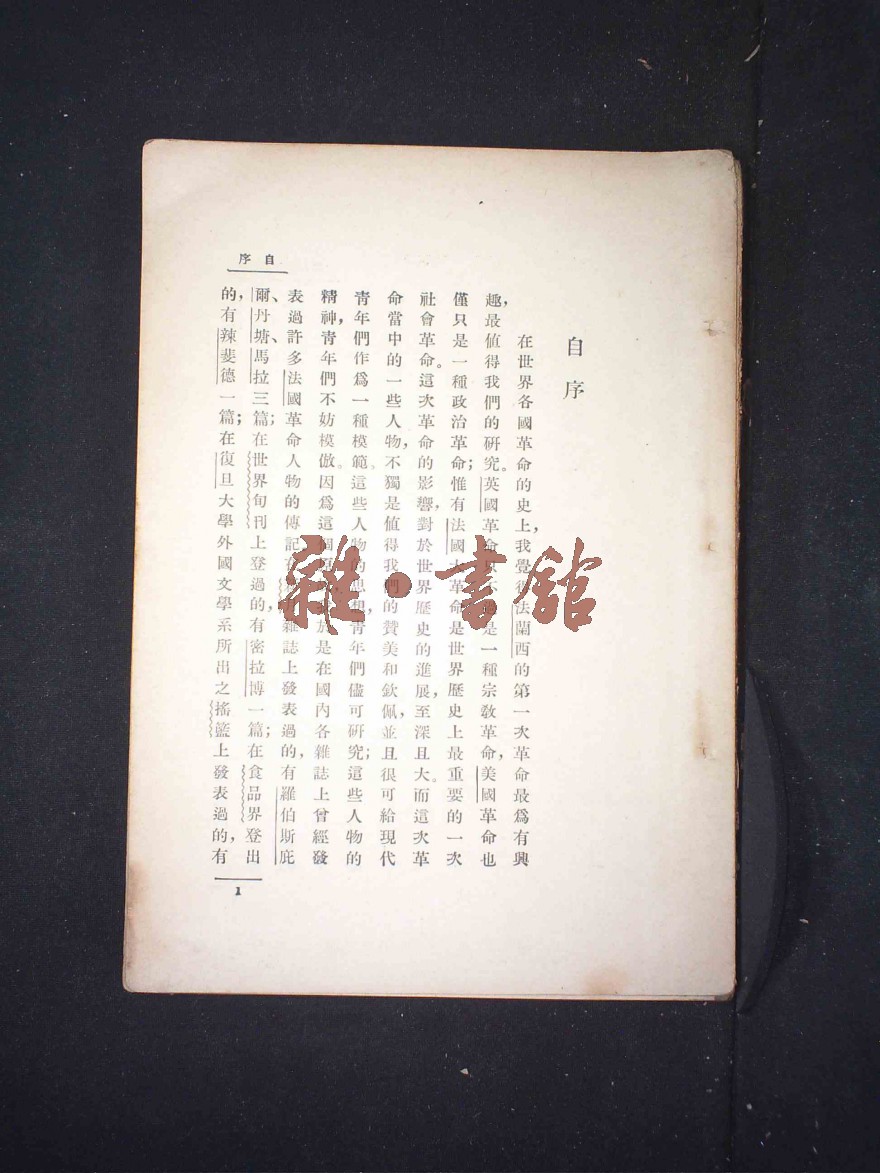 自序
自序
在世界各國革命的史上，我覺得法蘭西的第一次革命最爲有興
趣，最值得我們的研究。英國革命不過是一種宗敎革命，美國革命也
僅只是一種政治革命；惟有法國大革命是世界歷史上最重要的一次
社會革命。這次革命的影響，對於世界歷史的進展，至深且大。而這次革
命當中的一些人物，不獨是值得我們的贊美和欽佩，並且很可給現代
靑年們作爲一種模範。這些人物的思想，靑年們儘可硏究；這些人物的
精神，靑年們不妨模倣。因爲這個原於是在國內各雜誌上曾經發
表過許多法國革命人物的傳記在雜誌上發表過的，有羅伯斯庇
爾、丹塘、馬拉三篇；在世界旬刊上登過的，有密拉博一篇；在食品界登出
的，有辣斐德一篇；在復旦大學外國文學系所出之搖籃上發表過的，有
1
雜·書館